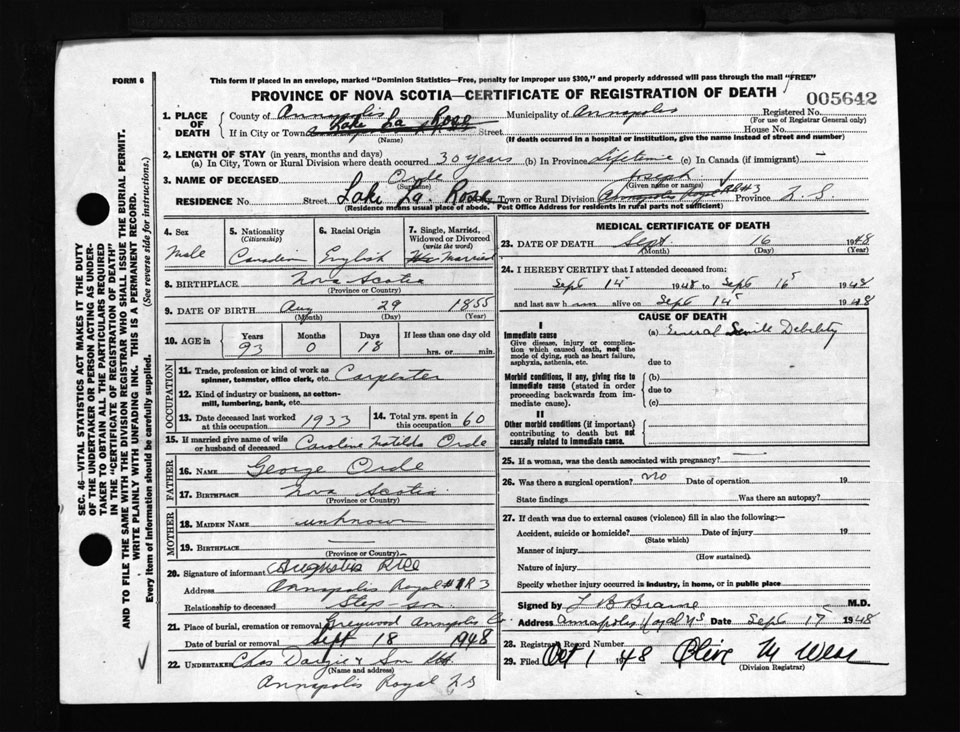 FORM 6
This form if placed in an envelope, marked "Dominion Statistics—Free, penalty for improper use $300," and properly addressed will pass through the mail "FREE"
PROVINCE OF NOVA SCOTIA—CERTIFICATE OF REGISTRATION OF DEATH
005642
1. PLACE OF DEATH
County of Annapolis Municipality of Annapolis Registered No.
(For use of Registrar General only)
If in City or Town Lake La Rose Street House No.
(Name) (If death occurred in a hospital or institution, give the name instead of street and number)
2. LENGTH OF STAY (in years, months and days)
(a) In City, Town or Rural Division where death occurred 30 years (b) In Province Lifetime (c) In Canada (if immigrant) —
3. NAME OF DECEASED Orde Joseph
(Surname) (Given name or names)
RESIDENCE No. Street Lake La. Rose Town or Rural Division Annapolis Royal RR#3 Province N.S.
(Residence means usual place of abode. Post Office Address for residents in rural parts not sufficient)
4. Sex Male
5. Nationality (Citizenship) Canadian
6. Racial Origin English
7. Single, Married, Widowed or Divorced (write the word) Married
8. BIRTHPLACE Nova Scotia
(Province or Country)
9. DATE OF BIRTH Aug 29 1855
(Month) (Day) (Year)
10. AGE in Years 93 Months 0 Days 18 If less than one day old hrs. or min.
OCCUPATION
11. Trade, profession or kind of work as spinner, teamster, office clerk, etc. Carpenter
12. Kind of industry or business, as cotton-mill, lumbering, bank, etc.
13. Date deceased last worked at this occupation 1933
14. Total yrs. spent in this occupation 60
15. If married give name of wife or husband of deceased Caroline Matilda Orde
FATHER
16. NAME George Orde
17. BIRTHPLACE Nova Scotia
(Province or Country)
MOTHER
18. MAIDEN NAME unknown
19. BIRTHPLACE —
(Province or Country)
20. Signature of informant Augustus Rice
Address Annapolis Royal #1 R 3
Relationship to deceased Step-son
21. Place of burial, cremation or removal Greywood Annapolis Co.
Date of burial or removal Sept 18 1948
22. UNDERTAKER Chas Dargie & Son Ltd.
(Name and address)
Annapolis Royal N S
MEDICAL CERTIFICATE OF DEATH
23. DATE OF DEATH Sept. 16 1948
(Month) (Day) (Year)
24. I HEREBY CERTIFY that I attended deceased from:
Sept 14 1948 to Sept 16 1948
and last saw h im alive on Sept 14 1948
CAUSE OF DEATH
I
Immediate cause
Give disease, injury or complication which caused death, not the mode of dying, such as heart failure, asphyxia, asthenia, etc.
(a) General Senile Debility
due to
Morbid conditions, if any, giving rise to immediate cause (stated in order proceeding backwards from immediate cause).
(b)
due to
(c)
II
Other morbid conditions (if important) contributing to death but not causally related to immediate cause.
25. If a woman, was the death associated with pregnancy? —
26. Was there a surgical operation? no Date of operation 19
State findings Was there an autopsy?
27. If death was due to external causes (violence) fill in also the following:—
Accident, suicide or homicide? Date of injury 19
(State which)
Manner of injury
(How sustained)
Nature of injury
Specify whether injury occurred in industry, in home, or in public place
Signed by L B Braine M.D.
Address Annapolis Royal NS Date Sept 17 1948
28. Registrar's Record Number
29. Filed Oct 1 48 Olive M Weir
(Division Registrar)
SEC. 46—VITAL STATISTICS ACT MAKES IT THE DUTY
OF THE UNDERTAKER OR PERSON ACTING AS UNDER-
TAKER TO OBTAIN ALL THE PARTICULARS REQUIRED
IN THE "CERTIFICATE OF REGISTRATION OF DEATH"
AND TO FILE THE SAME WITH THE DIVISION REGISTRAR WHO SHALL ISSUE THE BURIAL PERMIT.
WRITE PLAINLY WITH UNFADING INK. THIS IS A PERMANENT RECORD.
Every item of Information should be carefully supplied. (See reverse side for instructions.)